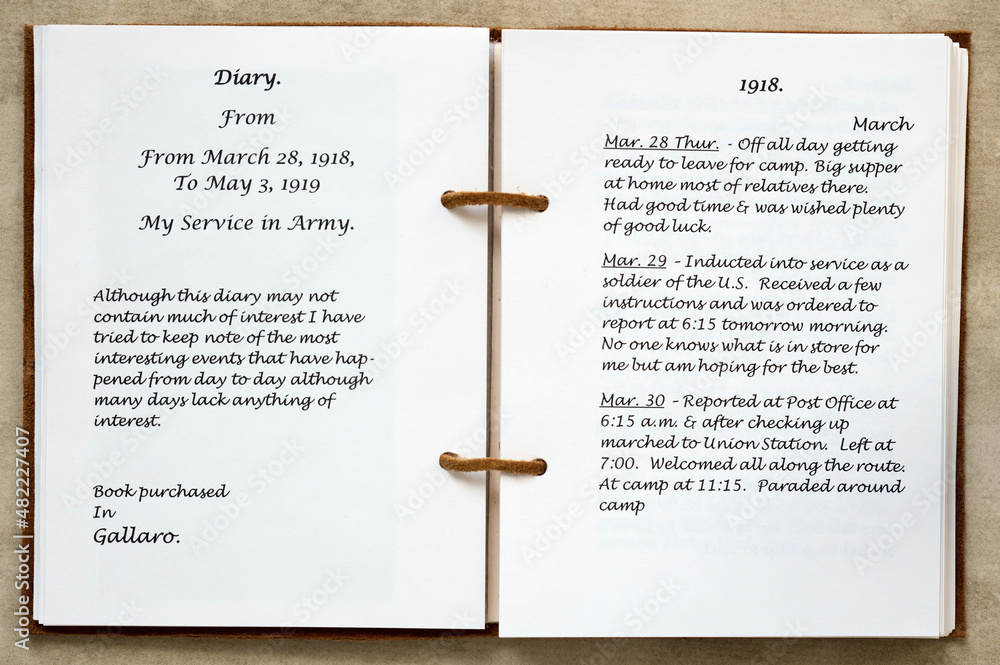 Diary.
From
From March 28, 1918,
To May 3, 1919
My Service in Army.
Although this diary may not
contain much of interest I have
tried to keep note of the most
interesting events that have hap-
pened from day to day although
many days lack anything of
interest.
Book purchased
In
Gallaro.
1918.
March
Mar. 28 Thur. - Off all day getting
ready to leave for camp. Big supper
at home most of relatives there.
Had good time & was wished plenty
of good luck.
Mar. 29 - Inducted into service as a
soldier of the U.S. Received a few
instructions and was ordered to
report at 6:15 tomorrow morning.
No one knows what is in store for
me but am hoping for the best.
Mar. 30 - Reported at Post Office at
6:15 a.m. & after checking up
marched to Union Station. Left at
7:00. Welcomed all along the route.
At camp at 11:15. Paraded around
camp
Adobe Stock | #482227407